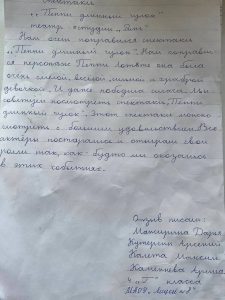 спектакль
,,Пеппи длинный чулок"
театр-студии ,,Элис"
Нам очень понравился спектакль
,,Пеппи длинный чулок". Нам понравил-
ся персонаж Пеппи потому что она была
очень смелой, весёлой, милой и
девочкой. И даже победила силача. Мы
советуем посмотреть спектакль ,,Пеппи
длинный чулок". Этот спектакль можно
смотреть с большим удовольствием. Все
актёры постарались и отыграли свои
роли так, как-будто мы оказались
в этих событиях.
Отзыв писали:
Дарья
Арсений
Максим
Каменцева Арина
4 ,,Г" класса
"Лицей